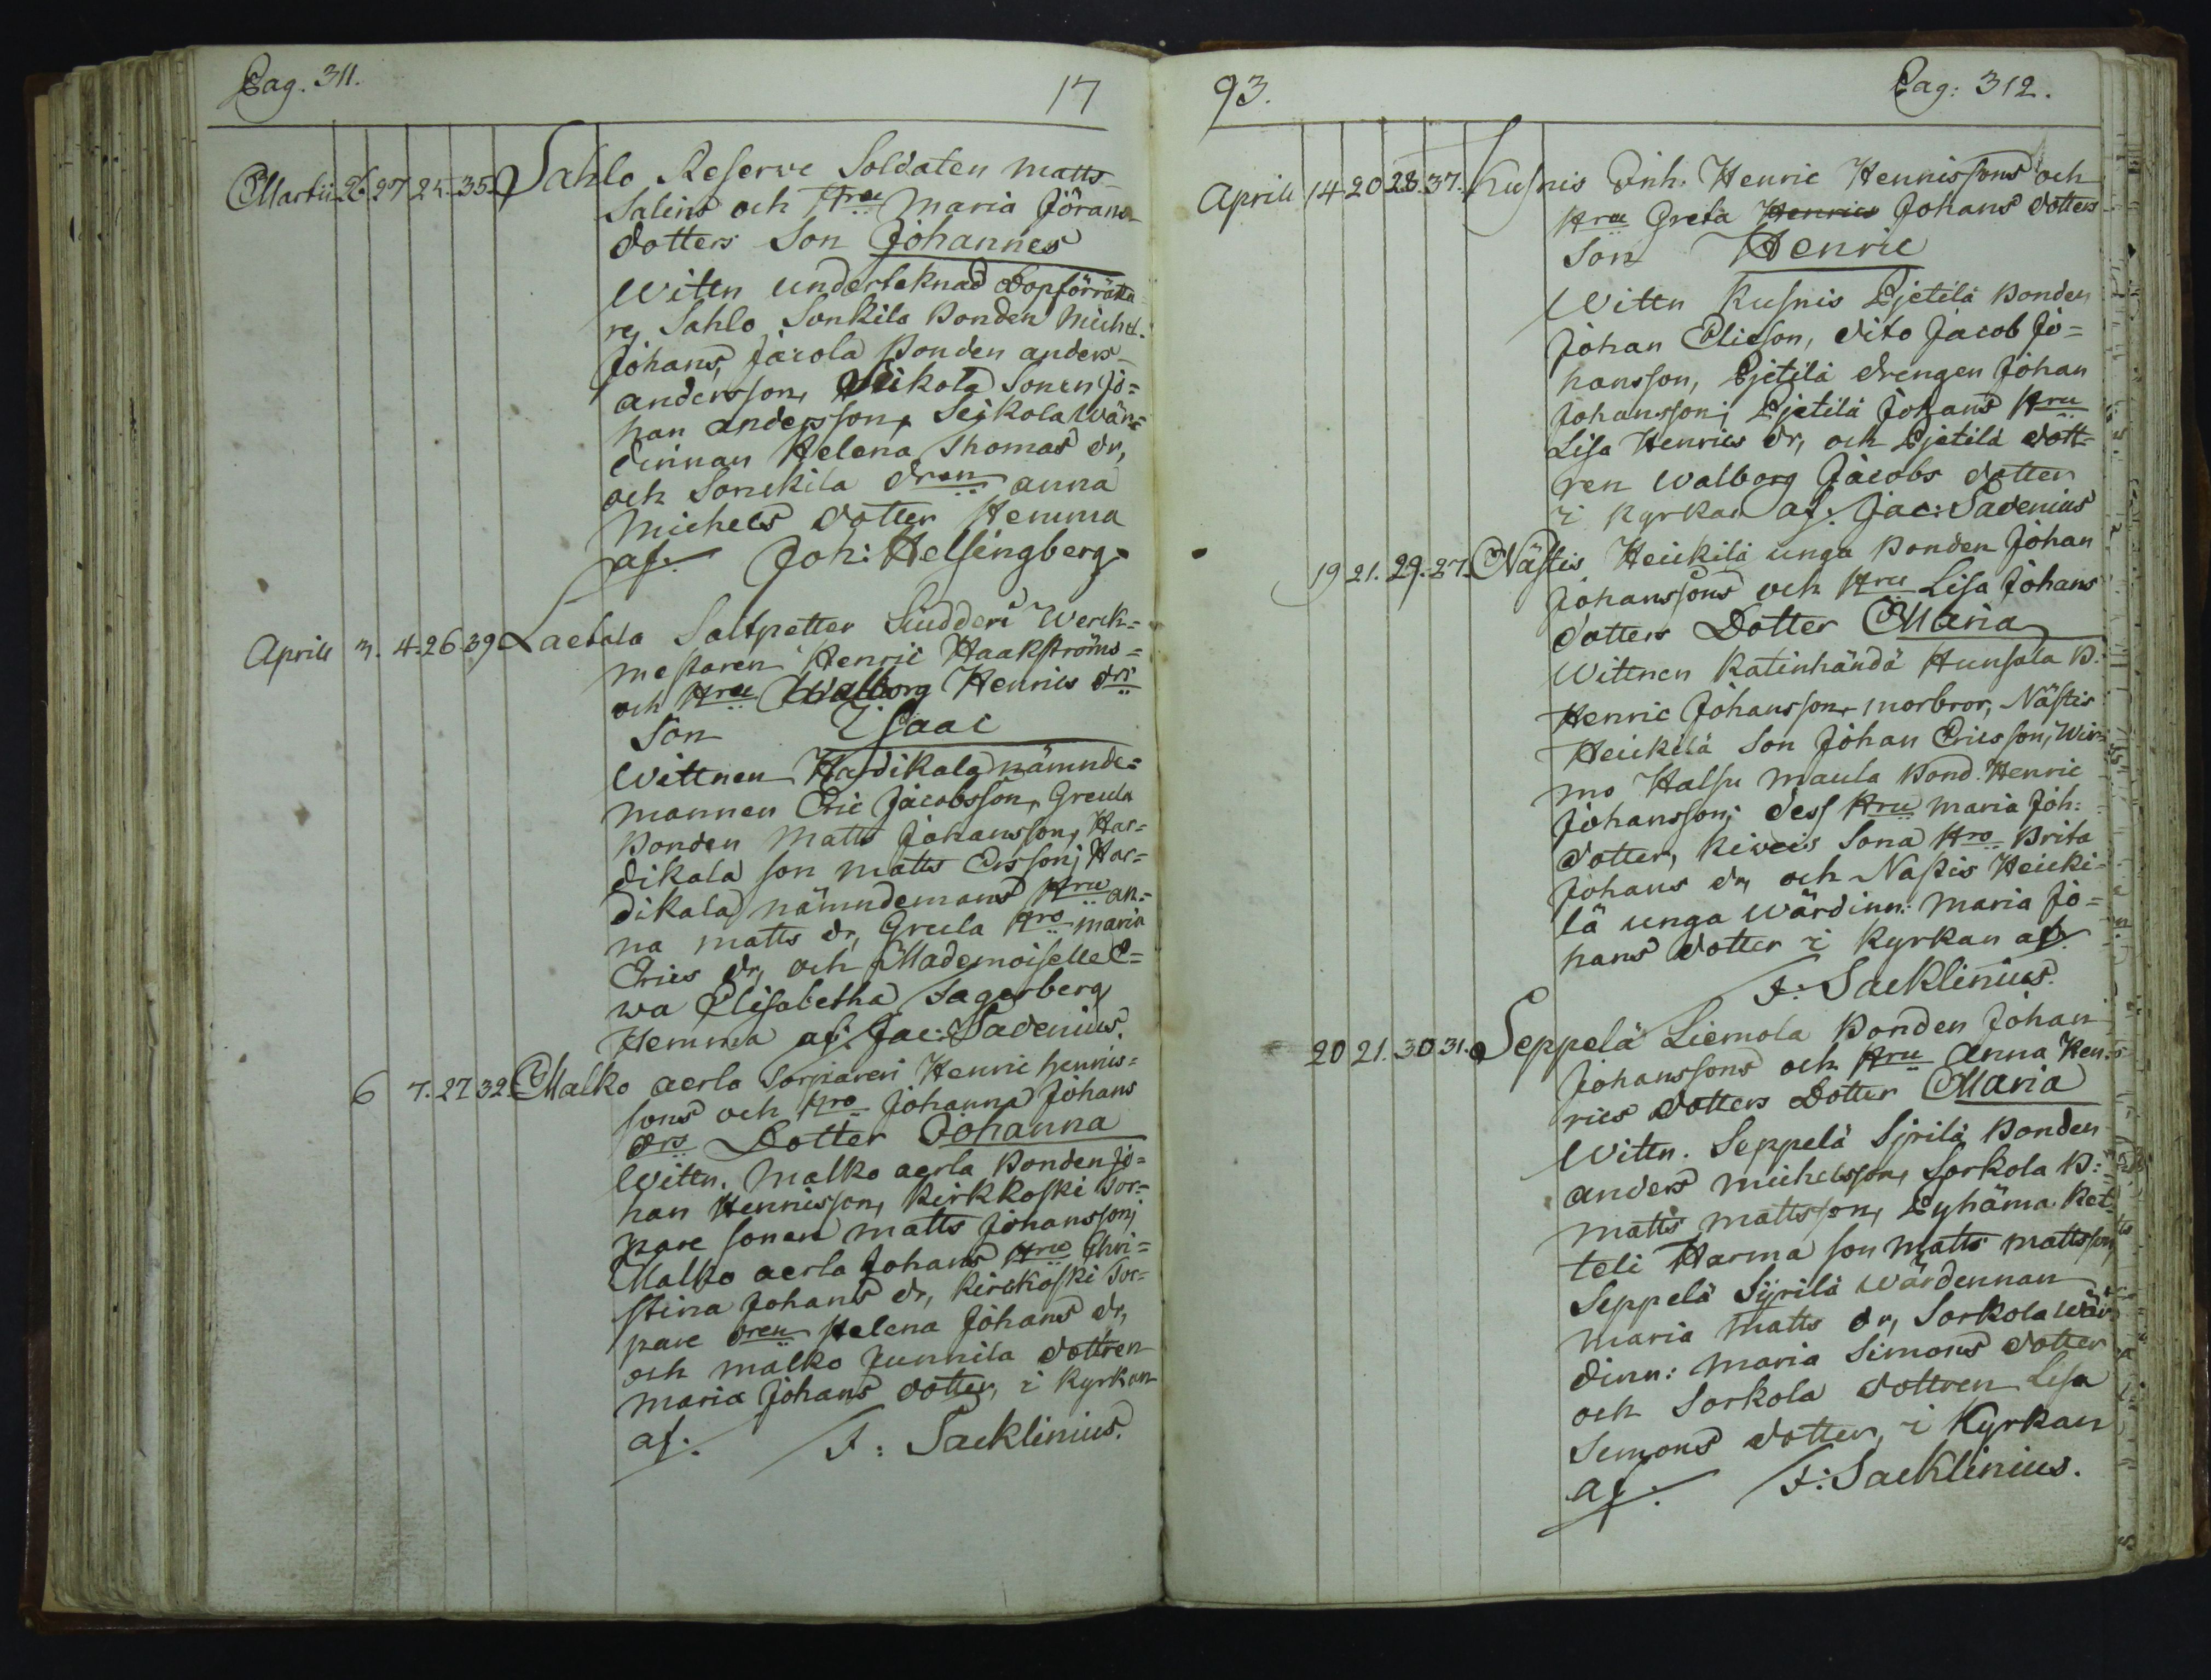 Pag. 311.
17
Martii 26. 27 24. 35. Sahlo Reserve Soldaten Matts
Salins och Hru Maria Jörans
dotters Son Johannes
Wittn underteknad Dopförrätta
re, Sahlo Sonkila Bonden Michel
Johans, Jacola Bonden anders
andersson, Seikola Sonen Jo=
han andersson, Seikola Wär=
dinnan Helena Thomas dr,
och Sonckila dren anna
Michels dotter Hemma
af. Joh: Helsingberg.
Aprill 3. 4. 26 39 Laebala Saltpetter Siudderi Werck=
mestaren Henric Haakströms=
och Hru Walborg Henrics drs
Son Isaac
Wittnen Hardikala nämnde=
mannen Eric Jacobsson, Greula
Bonden Matts Johansson, Har=
dikala son Matts Ersson; Har=
dikala nämndemans Hru an=
na matts dr, Greula Hro maria
Erics dr, och Mademoiselle E=
wa Elisabetha Lagerberg
Hemma af. Jac: Sadenius.
6 7. 27 32. Malko aerla Torparen Henric hennis=
sons och Hro Johanna Johans
drs Dotter Johanna
Wittn. Malko aerla Bonden Jo=
han Hennisson, Kirkkoski Tor=
pare sonen matts Johansson;
Malko aerla Johans Hru Chri=
stina Johans dr, Kirckoski Tor=
pare dren Helena Johans dr,
och mälko Junnila dottren
Maria Johans dotter, i Kyrkan
af. F: Sacklinius.
93.
Pag: 312.
Aprill 14 20 28. 37. Kusnis Inh. Henric Hennissons och
Hru Greta Henrics Johans dotters
Son Henric
Wittn Kusnis Pjetilä Bonden
Johan Elieson, dito Jacob Jo=
hansson, Pjetilä drengen Johan
Johansson; Pjetilä Johans Hru
Lisa Henrics dr, och Pjetilä dott=
ren Walborg Jacobs dotter
i Kyrkan af. Jac: Sadenius
19 21. 29. 27. Nästis Heickilä unga Bonden Johan
Johanssons och Hru Lisa Johans
dotters Dotter Maria
Wittnen Katinhändä Hunsala B.
Henric Johansson, morbror, Nästis
Heickilä Son Johan Ericsson, Wir=
mo Halsu Maula Bond. Henric
Johansson; dess Hru Maria Joh:
dotter, Kiveis Sona Hro Brita
Johans dr, och Nästis Heicki=
lä unga Wärdinn: Maria Jo=
hans dotter i Kyrkan af.
F: Sacklinius.
20 21. 30 31. Seppelä Liemola Bonden Johan
Johanssons och Hru Anna Hen=
rics dotters Dotter Maria
Wittn. Seppelä Sjrilä Bonden
anders michelsson, Sorkola B:
matts mattsson, Pyhäma Ket=
teli Harma son Matts mattsson,
Seppelä Sijrilä wärdennan
Maria Matts dr, Sorkola Wär
dinn: Maria Simons dotter
och Sorkola dottren Lisa
Simons dotter, i Kyrkan
af. F: Sacklinius.